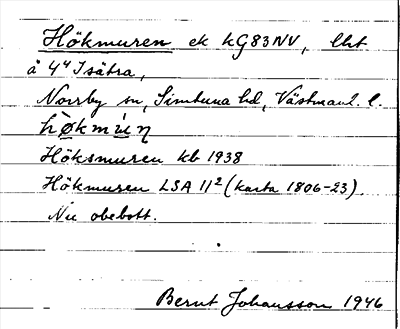 Hökmuren ek kG83NV, lht
å 4⁴ Isätra,
Norrby sn, Simtuna hd, Västmanl. l.
hø̀kmú̱η
Höksmuren kb 1938
Hökmuren LSA 11² (karta 1806-23).
Nu obebott.
Bernt Johansson 1946